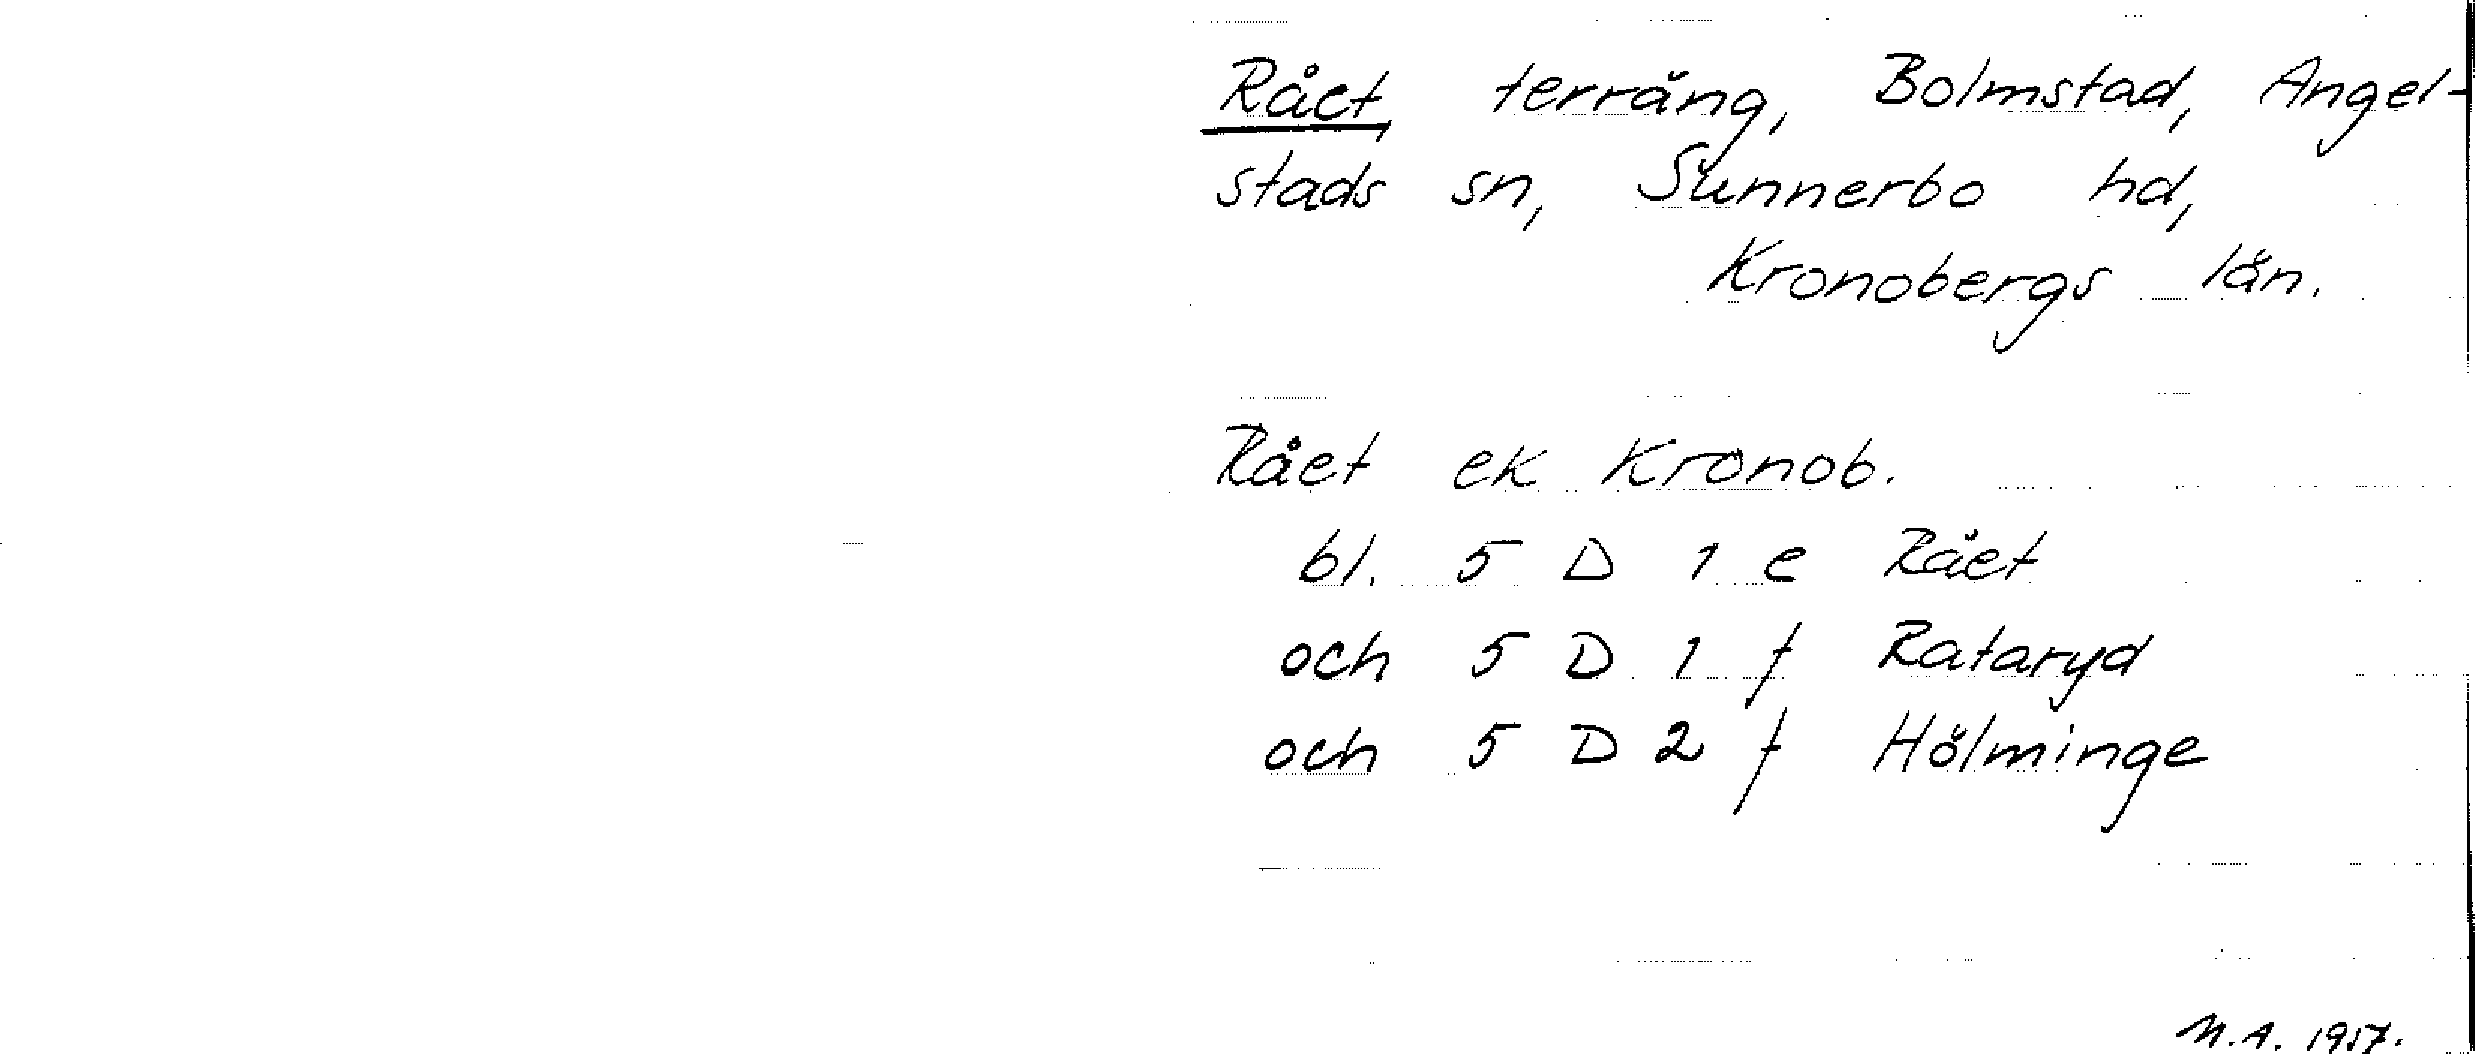 Rået, terräng, Bolmstad, Angel-
stads sn, Sunnerbo hd,
Kronobergs län.
Rået ek Kronob.
bl. 5 D 1 e Rået
och 5 D 1 f Rataryd
och 5 D 2 f Hölminge
M.A. 1957.